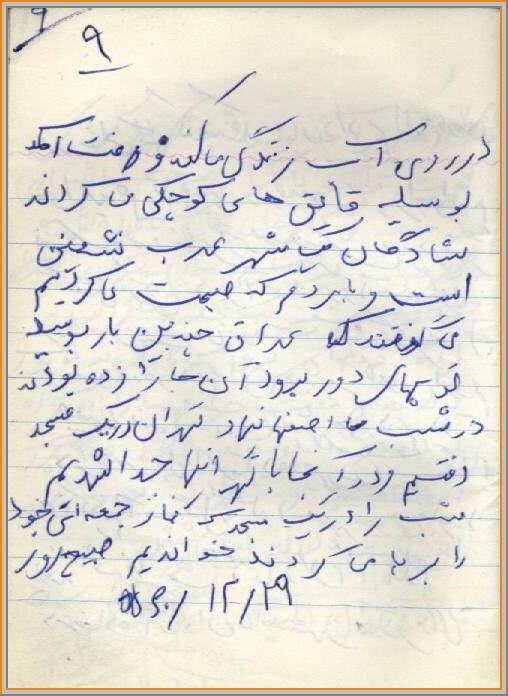 ۹
۹
در روی آب زندگی می‌کنند و رفت آمد
بوسیله قایق های کوچکی می کردند
شادگان یک شهر عرب نشین
است و با مردم که صحبت می کردیم
می گفتند که عراق چندین بار بوسیله
توپهای دور برد آن جا را زده بودند
در شب ما اصفهانها و تهران در یک مسجد
رفتیم و در آنجا با تهرانیها جدا شدیم
شب را در یک مسجد که نماز جمعه اش خود
را بر پا می کردند خواندیم صبح روز
۲۹/۱۲/